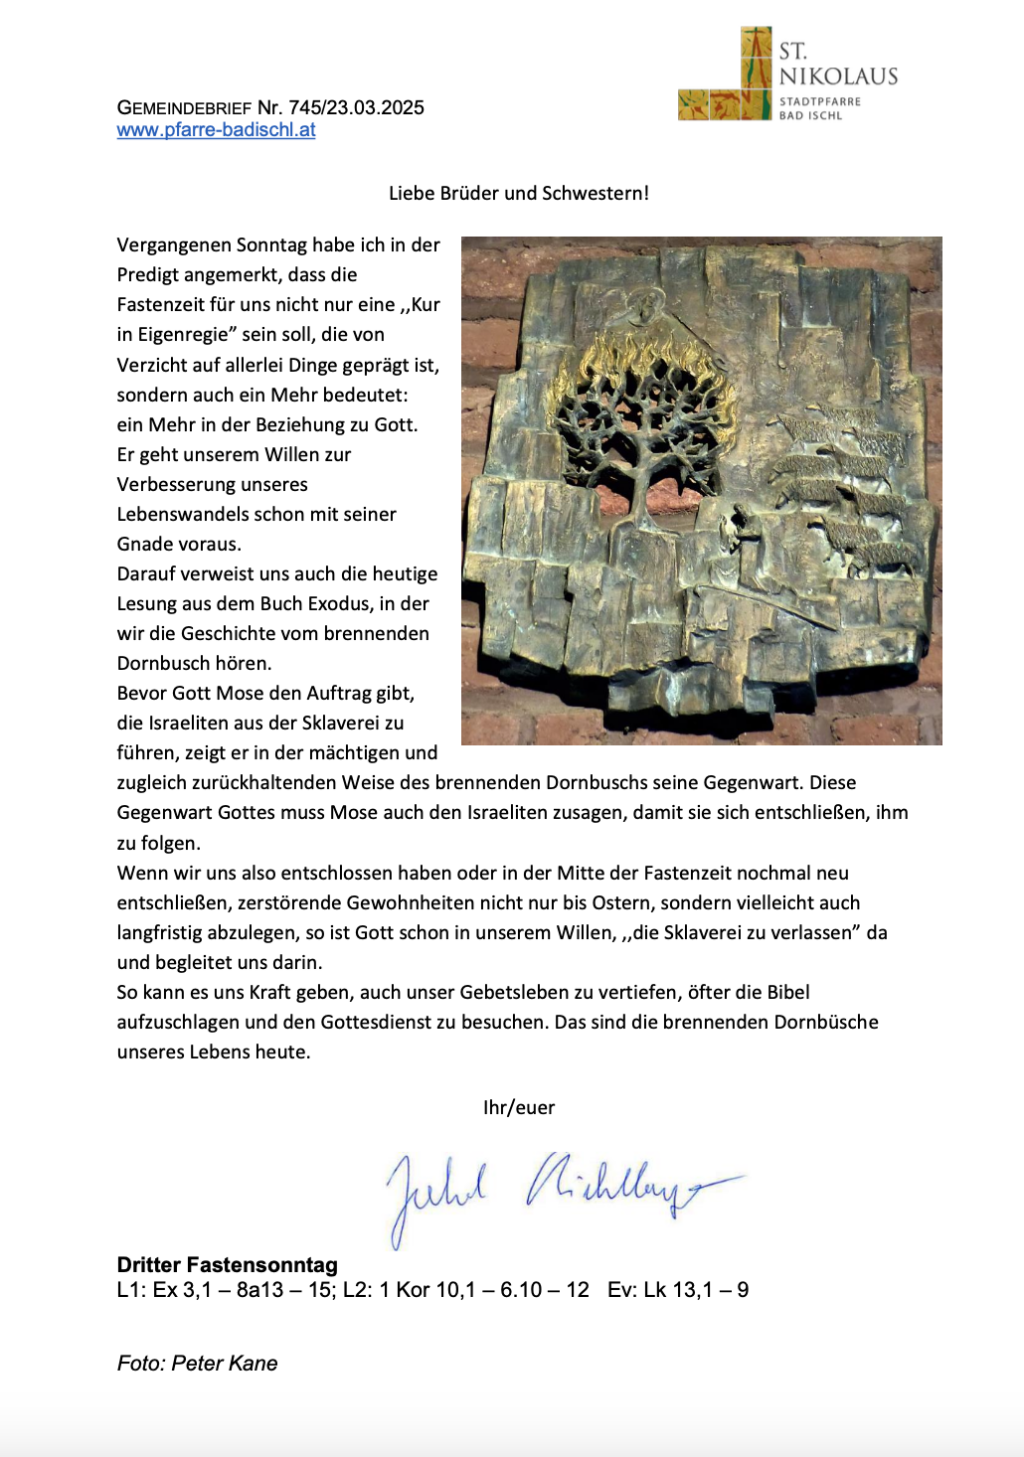 GEMEINDEBRIEF Nr. 745/23.03.2025
www.pfarre-badischl.at
ST.
NIKOLAUS
STADTPFARRE
BAD ISCHL
Liebe Brüder und Schwestern!
Vergangenen Sonntag habe ich in der
Predigt angemerkt, dass die
Fastenzeit für uns nicht nur eine ,,Kur
in Eigenregie” sein soll, die von
Verzicht auf allerlei Dinge geprägt ist,
sondern auch ein Mehr bedeutet:
ein Mehr in der Beziehung zu Gott.
Er geht unserem Willen zur
Verbesserung unseres
Lebenswandels schon mit seiner
Gnade voraus.
Darauf verweist uns auch die heutige
Lesung aus dem Buch Exodus, in der
wir die Geschichte vom brennenden
Dornbusch hören.
Bevor Gott Mose den Auftrag gibt,
die Israeliten aus der Sklaverei zu
führen, zeigt er in der mächtigen und
zugleich zurückhaltenden Weise des brennenden Dornbuschs seine Gegenwart. Diese
Gegenwart Gottes muss Mose auch den Israeliten zusagen, damit sie sich entschließen, ihm
zu folgen.
Wenn wir uns also entschlossen haben oder in der Mitte der Fastenzeit nochmal neu
entschließen, zerstörende Gewohnheiten nicht nur bis Ostern, sondern vielleicht auch
langfristig abzulegen, so ist Gott schon in unserem Willen, ,,die Sklaverei zu verlassen” da
und begleitet uns darin.
So kann es uns Kraft geben, auch unser Gebetsleben zu vertiefen, öfter die Bibel
aufzuschlagen und den Gottesdienst zu besuchen. Das sind die brennenden Dornbüsche
unseres Lebens heute.
Ihr/euer
Dritter Fastensonntag
L1: Ex 3,1 – 8a13 – 15; L2: 1 Kor 10,1 – 6.10 – 12 Ev: Lk 13,1 – 9
Foto: Peter Kane